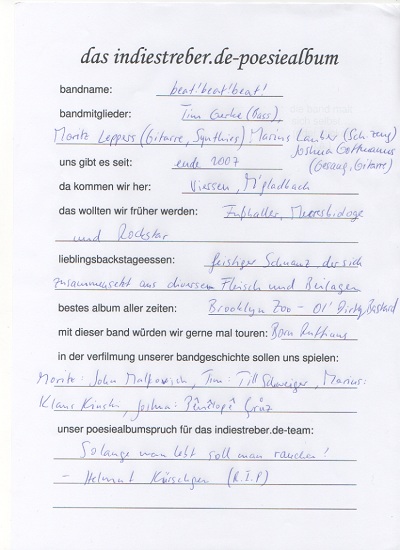 das indiestreber.de-poesiealbum
bandname: beat!beat!beat!
bandmitglieder: Tim Gerke (Bass),
Moritz Leppers (Gitarre, Synthies) Marius Lauber (Schlzeug)
Joshua Gottmanns
(Gesang, Gitarre)
uns gibt es seit: ende 2007
da kommen wir her: Viersen, M'gladbach
das wollten wir früher werden: Fußballer, Meeresbiologe
und Rockstar
lieblingsbackstageessen: feistiger Schmanz der sich
zusammensetzt aus diversem Fleisch und Beilagen
bestes album aller zeiten: Brooklyn Zoo - Ol' Dirty Bastard
mit dieser band würden wir gerne mal touren: Born Ruffians
in der verfilmung unserer bandgeschichte sollen uns spielen:
Moritz: John Malkovich, Tim: Till Schweiger, Marius:
Klaus Kinski, Joshua: Pênélopê Crûz
unser poesiealbumspruch für das indiestreber.de-team:
Solange man lebt soll man rauchen!
- Helmut Körschgen (R.I.P)